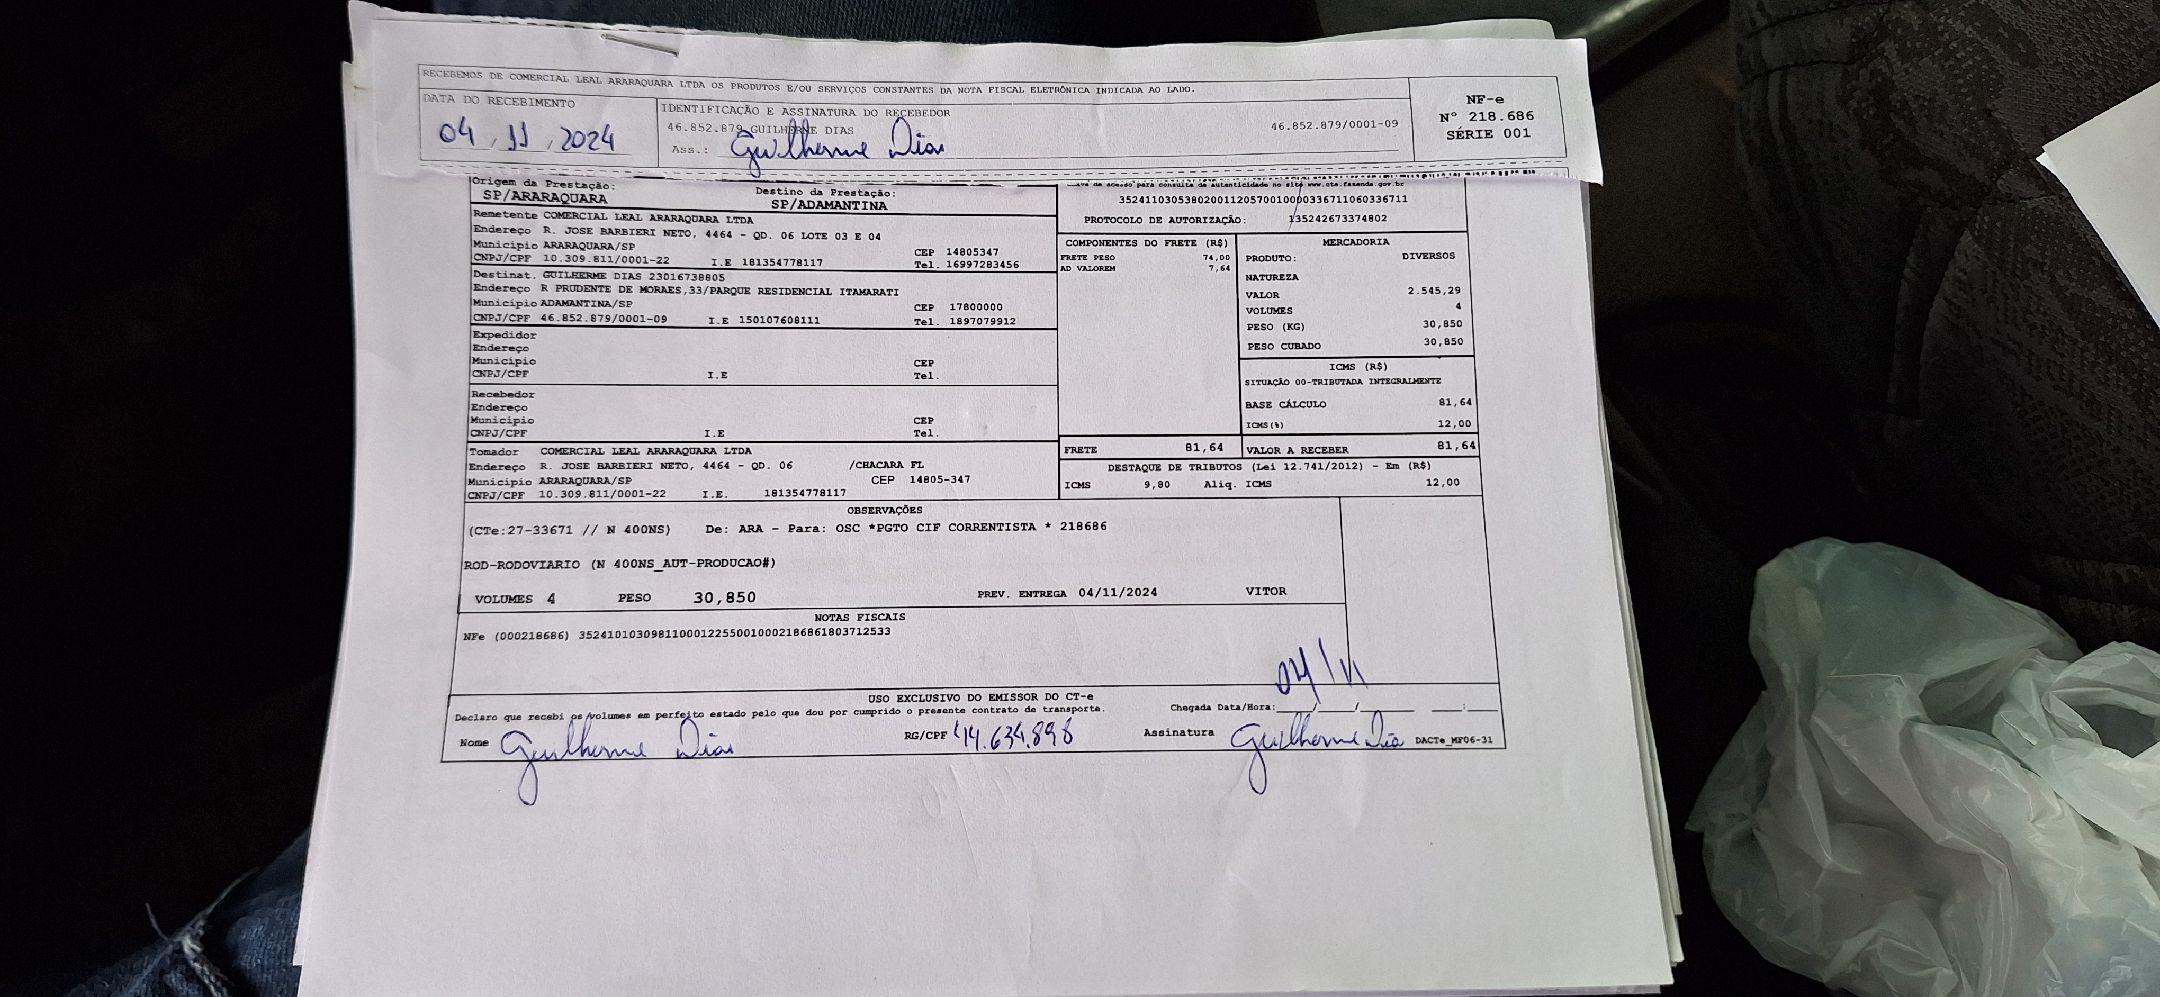 RECEBEMOS DE COMERCIAL LEAL ARARAQUARA LTDA OS PRODUTOS E/OU SERVIÇOS CONSTANTES DA NOTA FISCAL ELETRÔNICA INDICADA AO LADO.
DATA DO RECEBIMENTO
04 / 11 / 2024
IDENTIFICAÇÃO E ASSINATURA DO RECEBEDOR
46.852.879 GUILHERME DIAS 46.852.879/0001-09
Ass.: Guilherme Dias
NF-e
N° 218.686
SÉRIE 001
Origem da Prestação:
SP/ARARAQUARA
Destino da Prestação:
SP/ADAMANTINA
Remetente COMERCIAL LEAL ARARAQUARA LTDA
Endereço R. JOSE BARBIERI NETO, 4464 - QD. 06 LOTE 03 E 04
Município ARARAQUARA/SP CEP 14805347
CNPJ/CPF 10.309.811/0001-22 I.E 181354778117 Tel. 16997283456
Destinat. GUILHERME DIAS 23016738805
Endereço R PRUDENTE DE MORAES,33/PARQUE RESIDENCIAL ITAMARATI
Município ADAMANTINA/SP CEP 17800000
CNPJ/CPF 46.852.879/0001-09 I.E 150107608111 Tel. 1897079912
Expedidor
Endereço
Município CEP
CNPJ/CPF I.E Tel.
Recebedor
Endereço
Município CEP
CNPJ/CPF I.E Tel.
Tomador COMERCIAL LEAL ARARAQUARA LTDA
Endereço R. JOSE BARBIERI NETO, 4464 - QD. 06 /CHACARA FL
Município ARARAQUARA/SP CEP 14805-347
CNPJ/CPF 10.309.811/0001-22 I.E. 181354778117
de acesso para consulta de autenticidade no site www.cte.fazenda.gov.br
35241103053802001120570010000336711060336711
PROTOCOLO DE AUTORIZAÇÃO: 135242673374802
COMPONENTES DO FRETE (R$)
FRETE PESO 74,00
AD VALOREM 7,64
MERCADORIA
PRODUTO: DIVERSOS
NATUREZA
VALOR 2.545,29
VOLUMES 4
PESO (KG) 30,850
PESO CUBADO 30,850
ICMS (R$)
SITUAÇÃO 00-TRIBUTADA INTEGRALMENTE
BASE CÁLCULO 81,64
ICMS(%) 12,00
FRETE 81,64 VALOR A RECEBER 81,64
DESTAQUE DE TRIBUTOS (Lei 12.741/2012) - Em (R$)
ICMS 9,80 Aliq. ICMS 12,00
OBSERVAÇÕES
(CTe:27-33671 // N 400NS) De: ARA - Para: OSC *PGTO CIF CORRENTISTA * 218686
ROD-RODOVIARIO (N 400NS_AUT-PRODUCAO#)
VOLUMES 4 PESO 30,850 PREV. ENTREGA 04/11/2024 VITOR
NOTAS FISCAIS
NFe (000218686) 35241010309811000122550010002186861803712533
04/11
USO EXCLUSIVO DO EMISSOR DO CT-e
Declaro que recebi os volumes em perfeito estado pelo que dou por cumprido o presente contrato de transporte. Chegada Data/Hora:____/____/____ ____:____
Nome Guilherme Dias RG/CPF 44.634.898 Assinatura Guilherme Dias DACTe_MF06-31